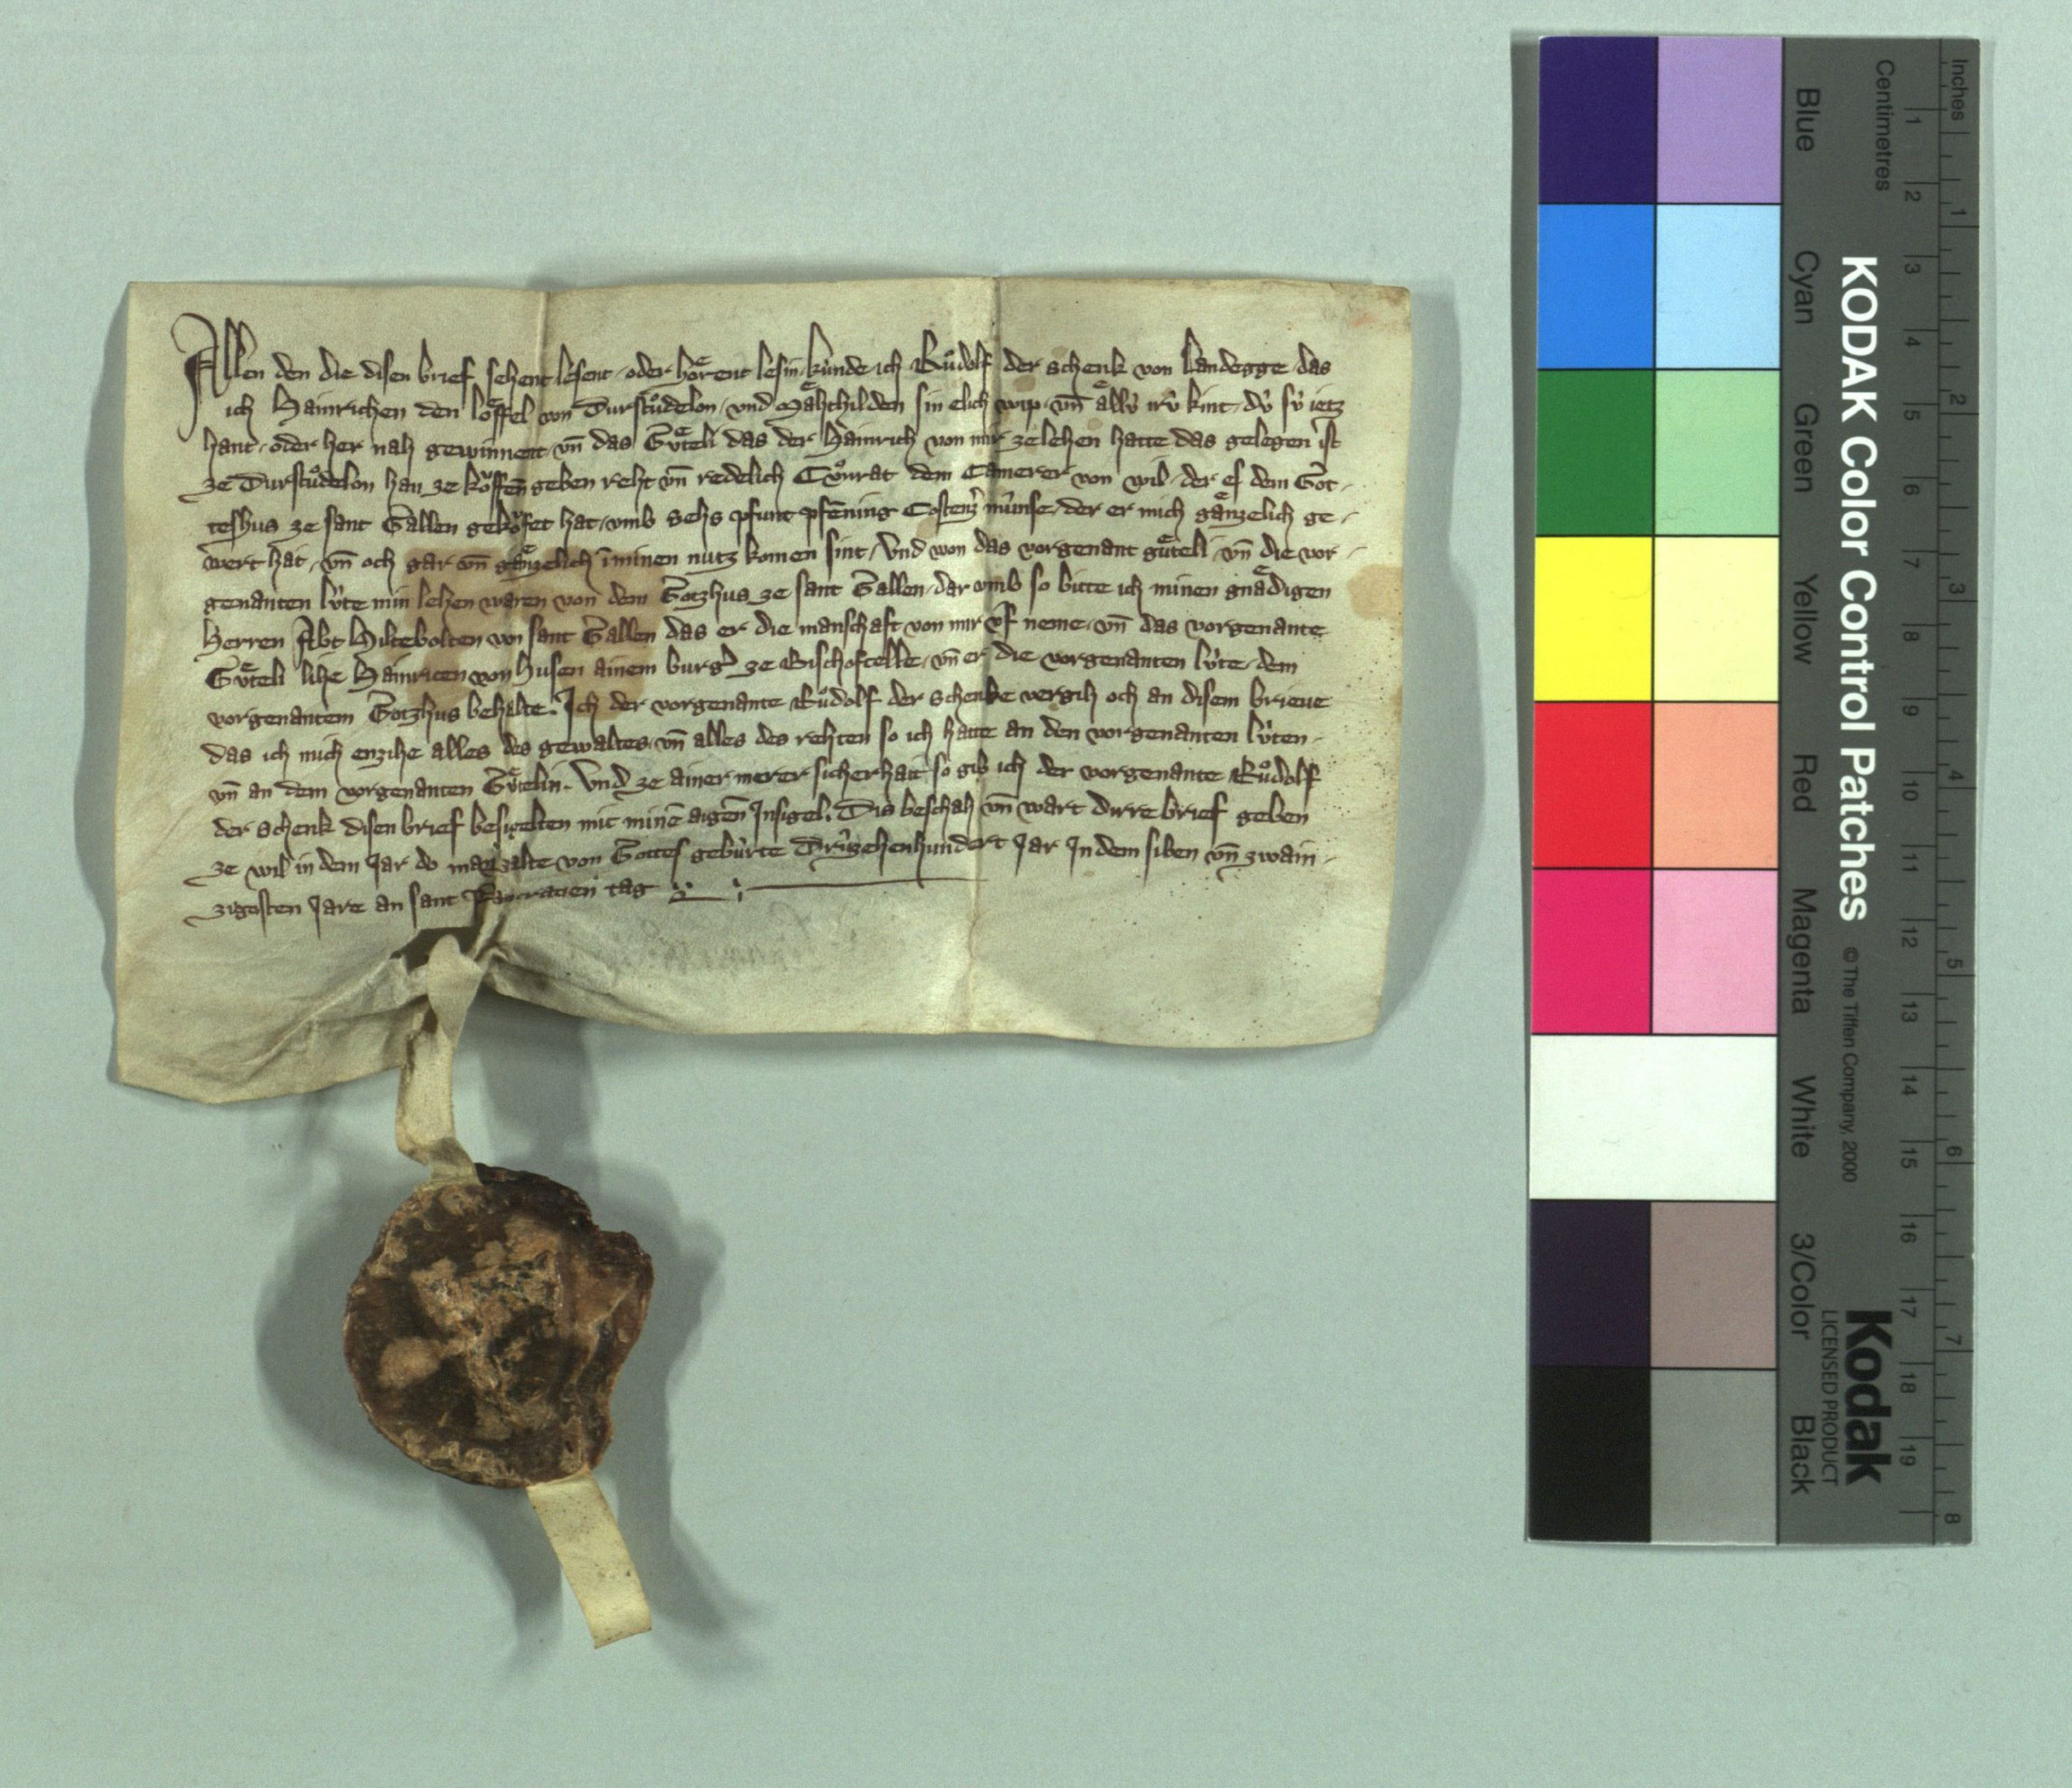 Allen den die disen brief sehent lesent oder hoͤrent lesin kúnde ich Ruͦdolf der schenk von Landegge das
ich Hainrichen den loͤffel von Durstuͦdelon vnd Maͤhthilden sin elich wip vn̄ aͤllv́ irv́ kint dv́ sv́ ietz
hant oder her nah gewinnent vn̄ das Guͤteli das der Hainrich von mir ze lehen hatte das gelegen ist
ze Durstuͦdelon han ze koͮffen̄ geben reht vn̄ redelich Cuͦnrat dem Camerer von wil der es dem Got
teshus ze sant Gallen gekoͮfet hat vmb sehs pfunt pfēning Costenzˀ múnse der er mich gaͤnzelich ge
wert hat vn̄ och gar vn̄ gaͤnzelich ī minen nutz komen sint Vnd won das vorgenant guͤteli vn̄ die vor
genanten lv́te min lehen waren von dem Gotzhus ze sant Gallen dar vmb so bitte ich minen gnaͤdigen
Herren Abt Hiltebolten von sant Gallen das er die manschaft von mir vf neme vn̄ das vorgenante
Guͤteli lihe Hainricen von Husen ainem burgˀ ze Bischofcelle vn̄ er die vorgenanten lv́te dem
vorgenantem Gotzhus behalte. Ich der vorgenante Ruͦdolf der schenke vergih och an disem brieue
das ich mich enzihe alles des gewaltes vn̄ alles des rehten so ich hatte an den vorgenanten lv́ten
vn̄ an dem vorgenanten Guͤtelin. Vnd ze ainer merer sicherhait so gib ich der vorgenante Ruͦdolf
der schenk disen brief besigelten mit minē aigen̄ Insigel. Dis beschah vn̄ wart dirre brief geben
ze wil in dem Jar do man zalte von Gottes gebúrte Drúzehenhundert Jar In dem siben vn̄ zwain
zigosten Jare an sant Pancracien tag
KODAK Color Control Patches
© The Tiffen Company, 2000
Kodak
LICENSED PRODUCT
Inches 1 2 3 4 5 6 7 8
Centimetres 1 2 3 4 5 6 7 8 9 10 11 12 13 14 15 16 17 18 19
Blue Cyan Green Yellow Red Magenta White 3/Color Black